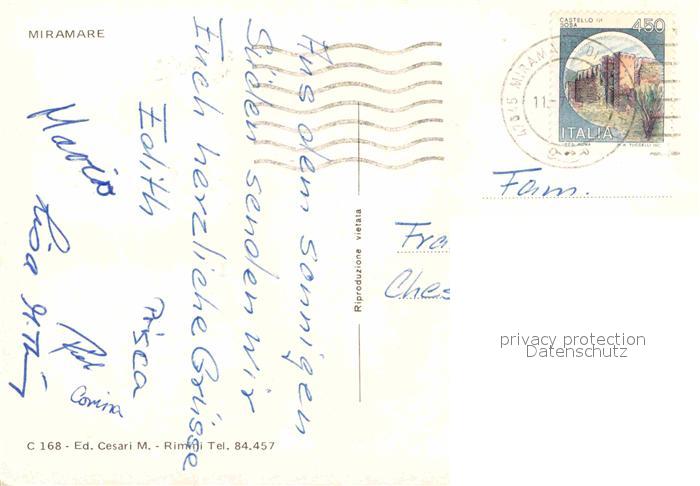 MIRAMARE
Aus dem sonnigen
Süden senden wir
Euch herzliche Grüsse
Edith Prisca
Mario
Lisa
Corina
CASTELLO DI
BOSA
450
ITALIA
MIRAMARE
11.
Riproduzione vietata
Fam.
Fra
Ches
privacy protection
Datenschutz
C 168 - Ed. Cesari M. - Rimini Tel. 84.457